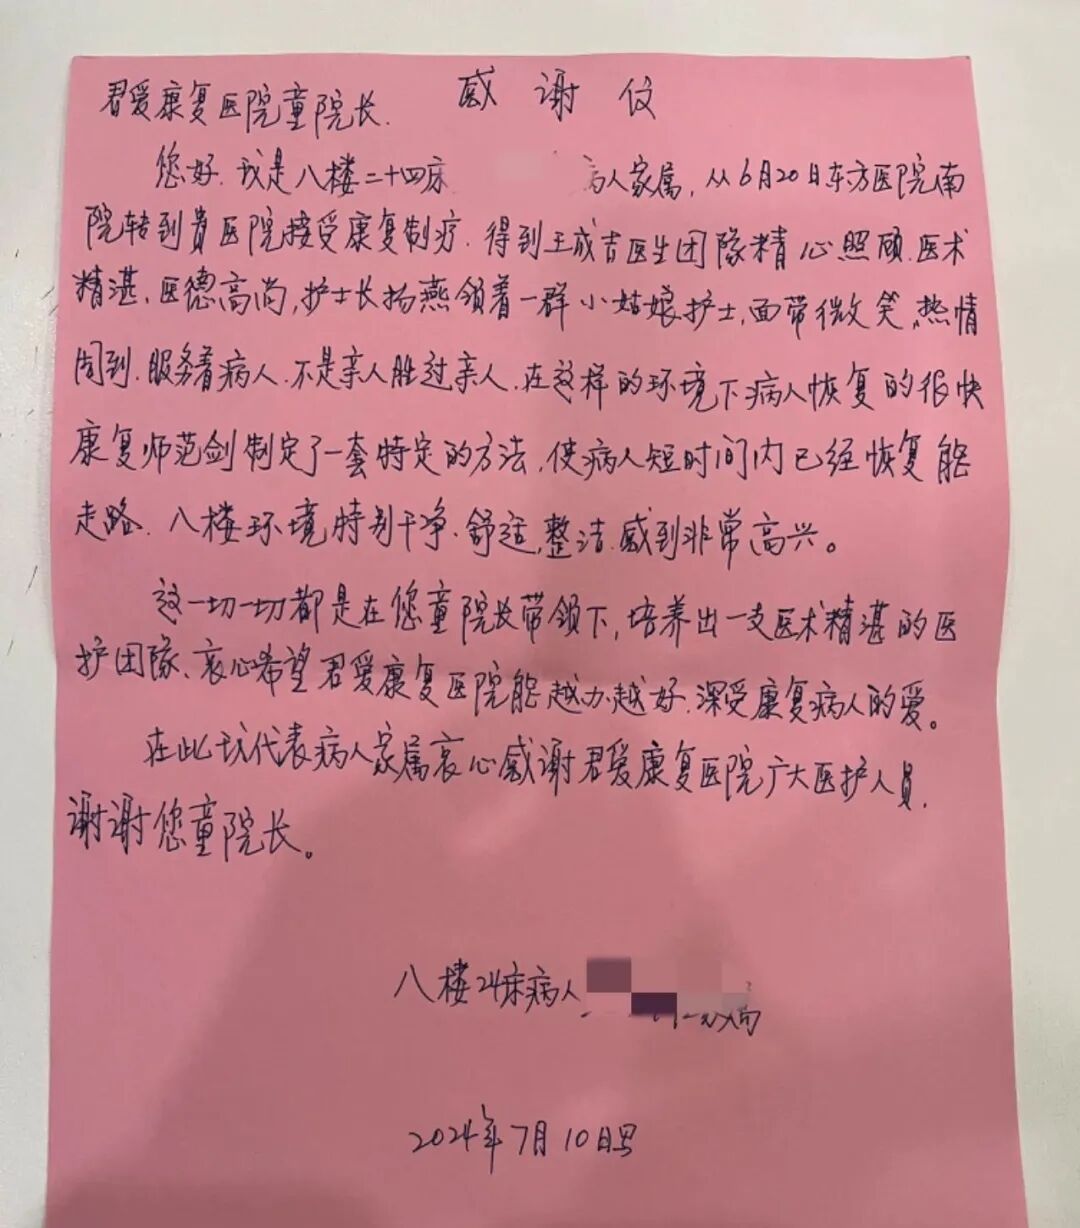 感谢信
君爱康复医院童院长.
您好.我是八楼二十四床 病人家属,从6月20日东方医院南
院转到贵医院接受康复制疗.得到王成吉医生团隊精心照顾.医术
精湛.医德高尚,护士长扬燕领着一群小姑娘护士,面带微笑.热情
周到.服务着病人.不是亲人胜过亲人.在这样的环境下病人恢复的很快
康复师范剑制定了一套特定的方法,使病人短时间内已经恢复能
走路.八楼环境特别干净.舒适,整洁.感到非常高兴。
这一切一切都是在您童院长带领下,培养出一支医术精湛的医
护团隊、衷心希望君爱康复医院能越办越好.深受康复病人的爱。
在此我代表病人家属衷心感谢君爱康复医院广大医护人员.
谢谢您童院长。
八楼24床病人
2024年7月10日写